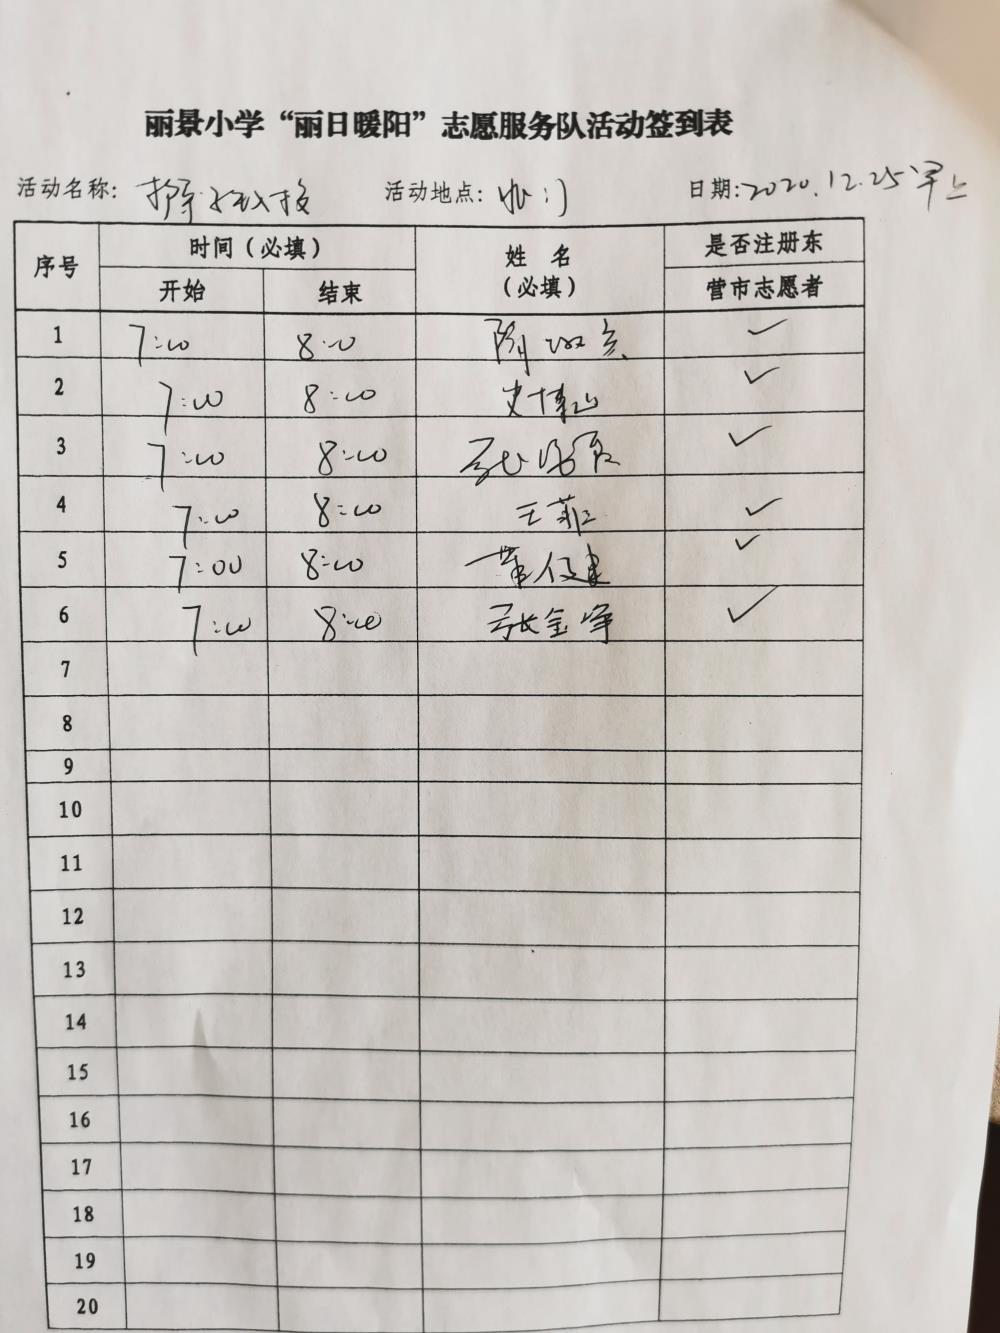 丽景小学“丽日暖阳”志愿服务队活动签到表
活动名称: 活动地点: 日期:2020.12.25早上
序号 时间(必填) 姓 名 (必填) 是否注册东
开始 结束 营市志愿者
1 7:00 8:00 ✓
2 7:00 8:00 史博山 ✓
3 7:00 8:00 ✓
4 7:00 8:00 王菲 ✓
5 7:00 8:00 董俊建 ✓
6 7:00 8:00 张金峰 ✓
7
8
9
10
11
12
13
14
15
16
17
18
19
20